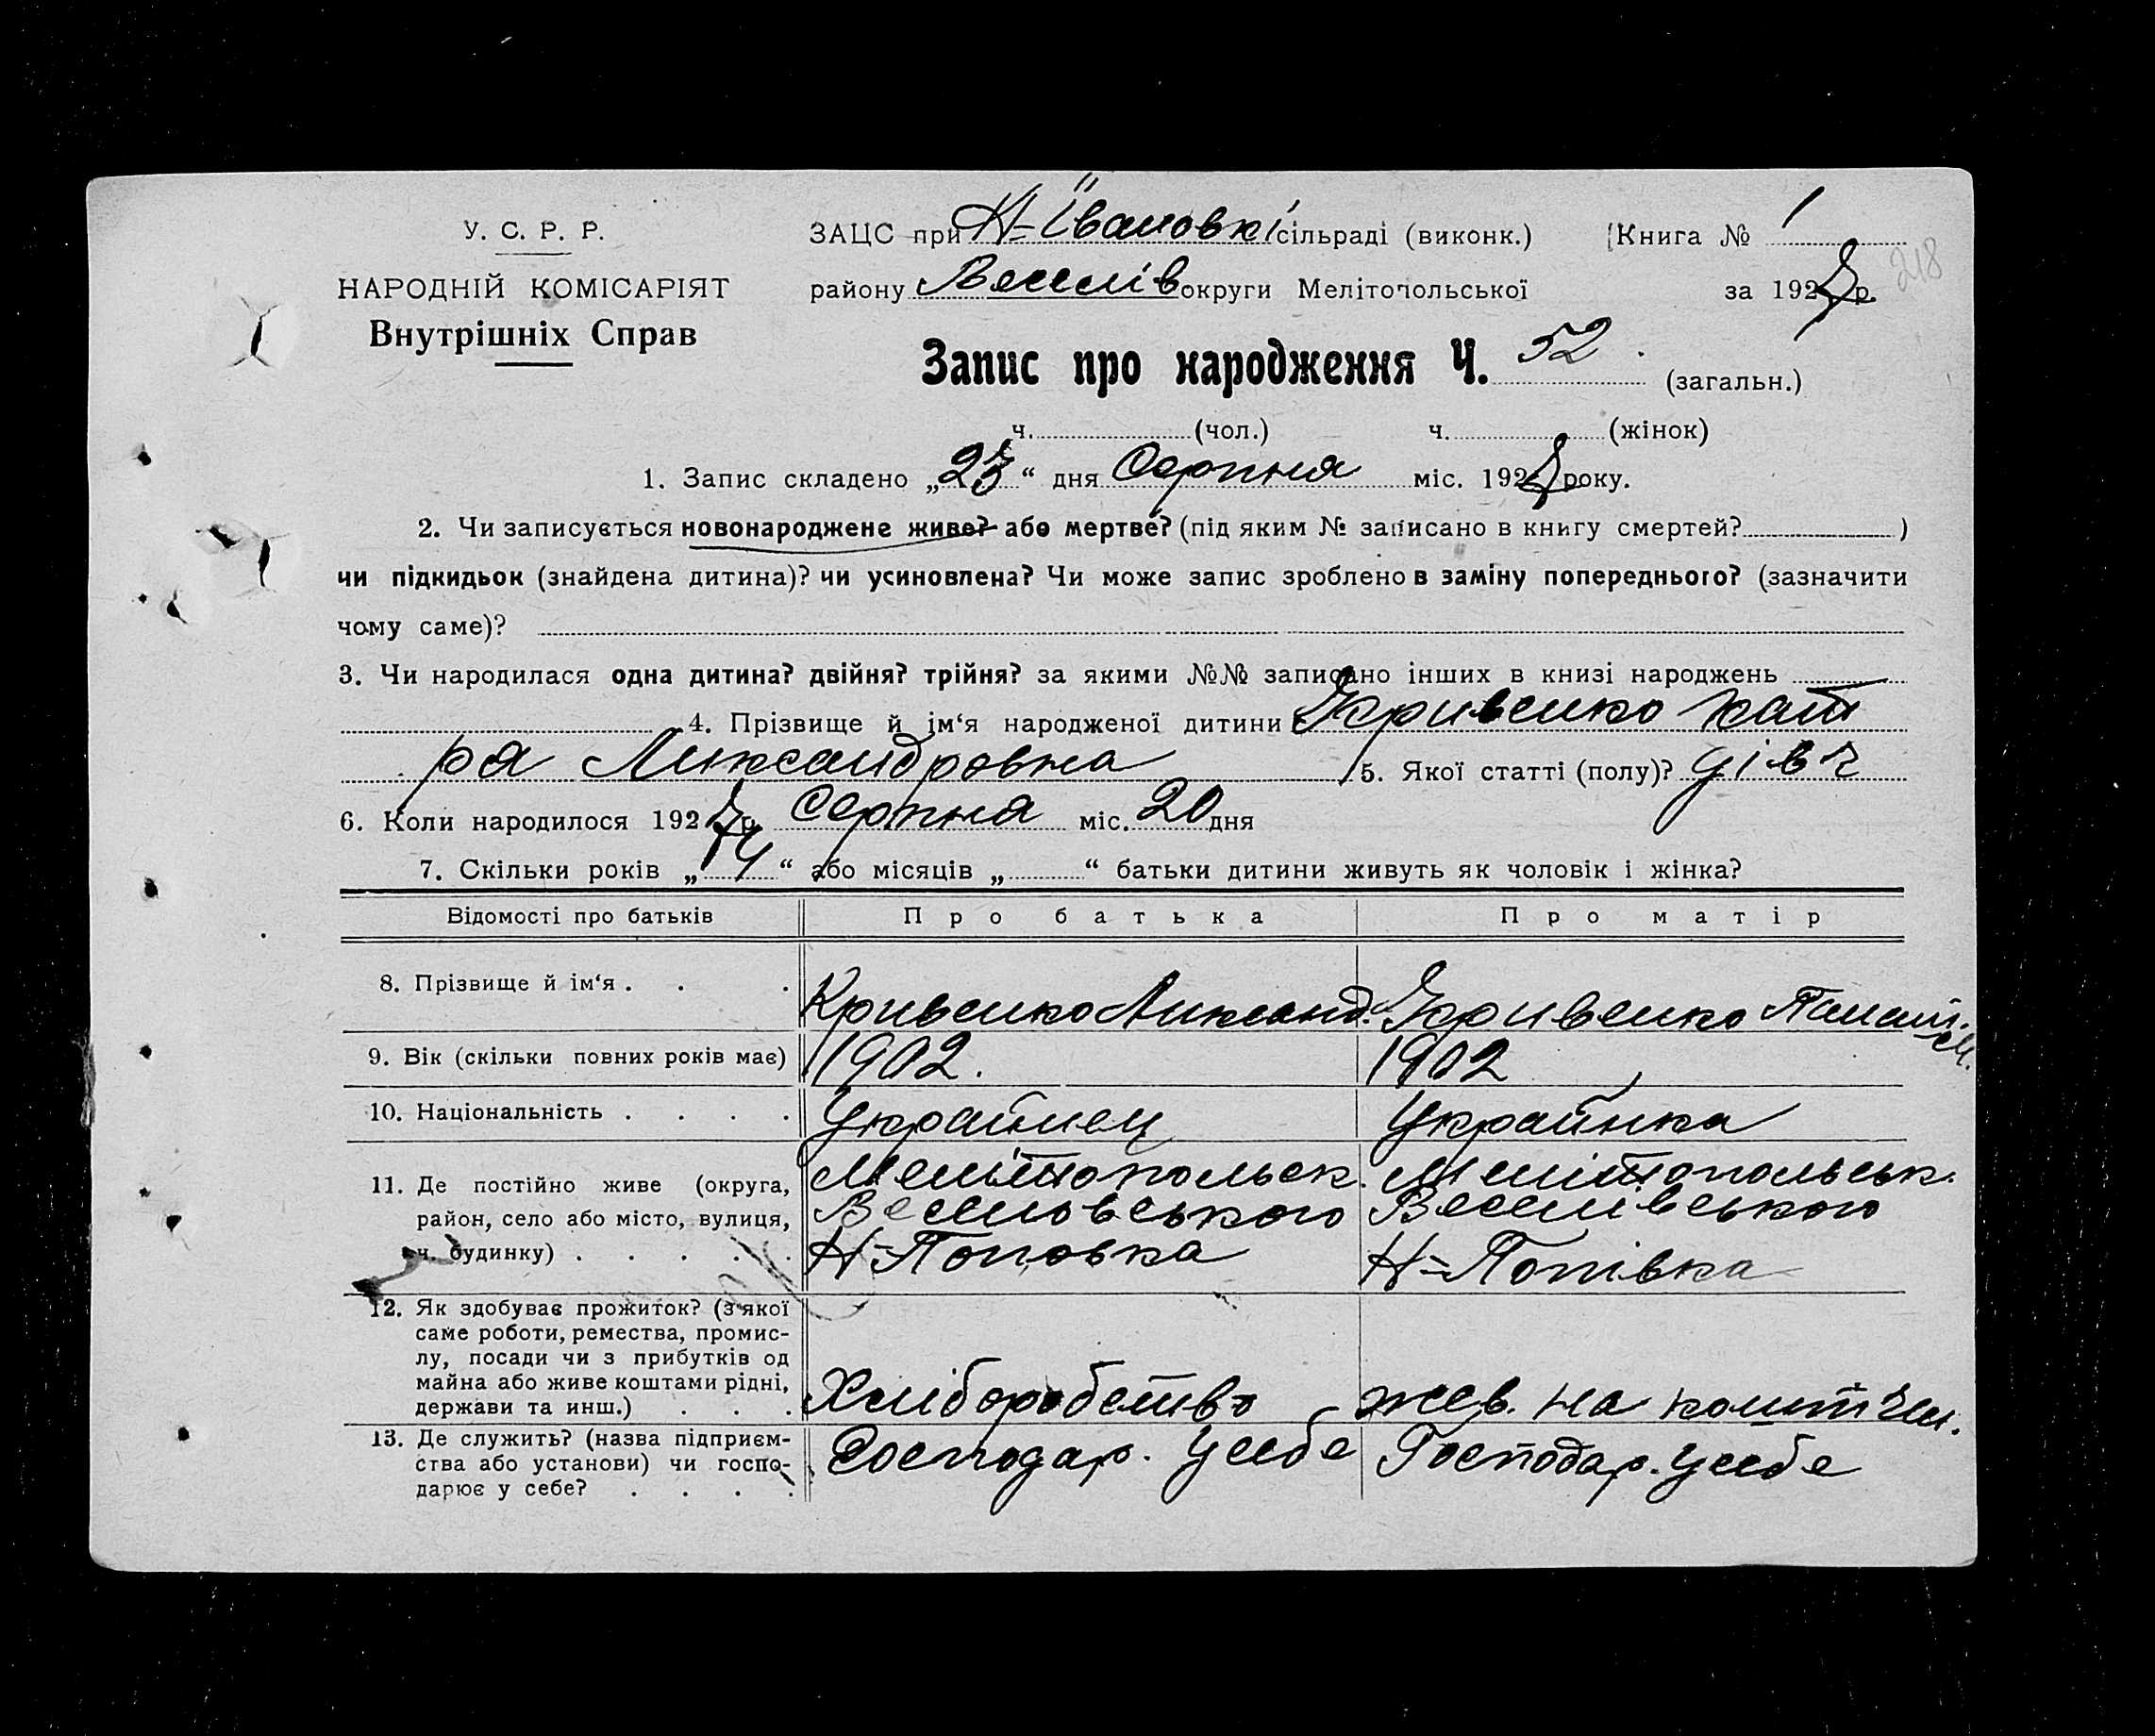 У. С. Р. Р.
НАРОДНІЙ КОМІСАРІЯТ
Внутрішніх Справ
ЗАЦС при Н-Івановкі сільраді (виконк.) Книга № 1
району Веселів округи Мелітопольської за 192 р. 218
Запис про народження Ч. 52 (загальн.)
ч. (чол.) ч. (жінок)
1. Запис складено „23“ дня Серпня міс. 192 року.
2. Чи записується новонароджене живе? або мертве? (під яким № записано в книгу смертей? )
чи підкидьок (знайдена дитина)? чи усиновлена? Чи може запис зроблено в заміну попереднього? (зазначити
чому саме)?
3. Чи народилася одна дитина? двійня? трійня? за якими №№ записано інших в книзі народжень
4. Прізвище й ім‘я народженої дитини Кривенко Кат
ра Александровна 5. Якої статті (полу)? дівч
6. Коли народилося 192 р. Серпня міс. 20 дня
7. Скільки років „4“ або місяців „ “ батьки дитини живуть як чоловік і жінка?
Відомості про батьків Про батька Про матір
8. Прізвище й ім‘я . . . Кривенко Александ. Кривенко
9. Вік (скільки повних років має) 1902. 1902
10. Національність . . . . Украйнец Украйнка
11. Де постійно живе (округа, Мелітопольск. Мелітопольськ.
район, село або місто, вулиця, Веселовського Веселівського
ч. будинку) . . . . . Н-Поповка Н-Попівка
12. Як здобуває прожиток? (з якої
саме роботи, ремества, промис-
лу, посади чи з прибутків од
майна або живе коштами рідні,
держави та инш.) . . . Хліборобство жив. на кошт чол.
13. Де служить? (назва підприєм-
ства або установи) чи госпо- Господар. у себе Господар. у себе
дарює у себе? . . . .